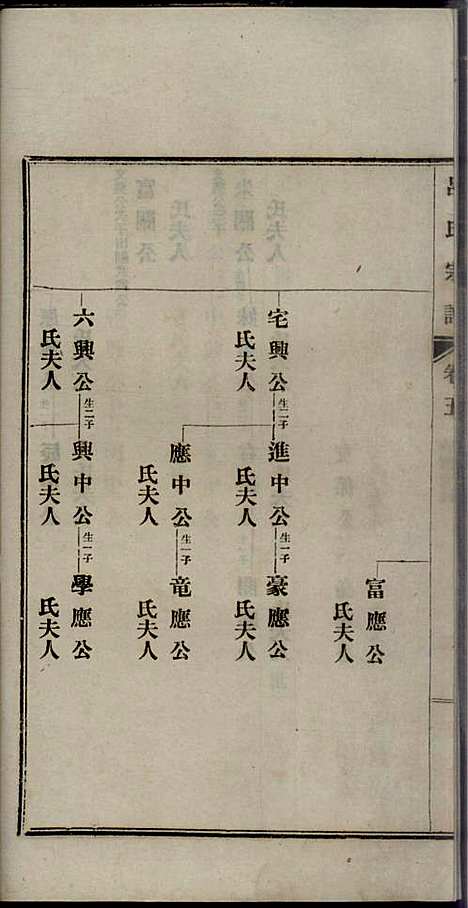 呂氏宗譜
卷五
富應公
氏夫人
宅興公 生二子 進中公 生一子 豪應公
氏夫人 氏夫人 氏夫人
應中公 生一子 竜應公
氏夫人 氏夫人
六興公 生二子 興中公 生一子 學應公
氏夫人 氏夫人 氏夫人